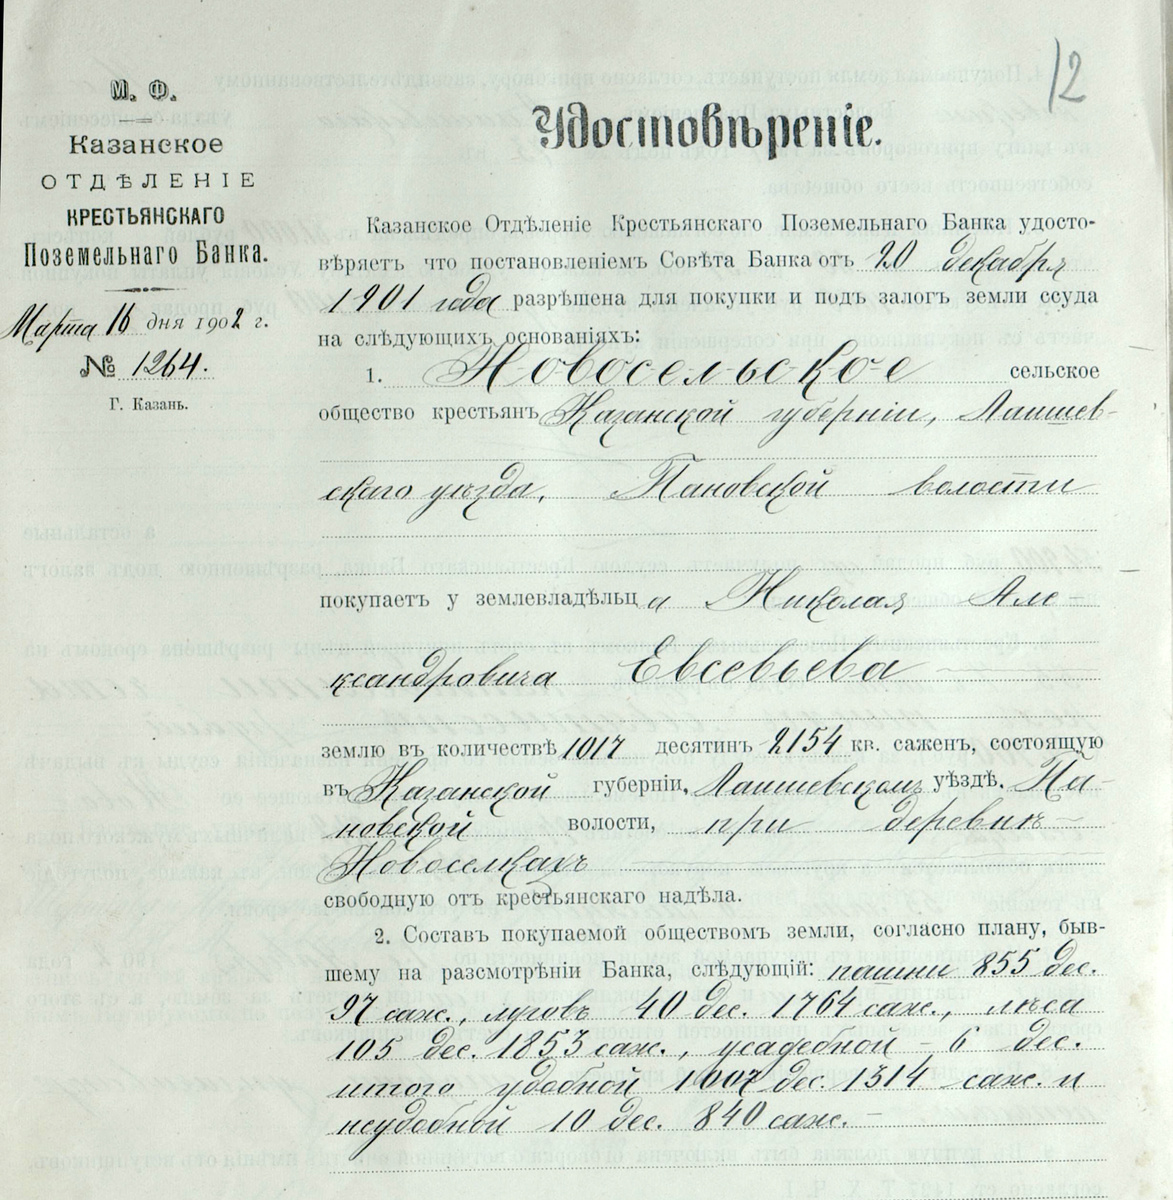 12
М. Ф.
Казанское
ОТДѢЛЕНІЕ
КРЕСТЬЯНСКАГО
Поземельнаго Банка.
Марта 16 дня 1902 г.
№ 1264.
Г. Казань.
Удостовѣреніе.
Казанское Отдѣленіе Крестьянскаго Поземельнаго Банка удосто-
вѣряетъ что постановленіемъ Совѣта Банка отъ 20 декабря
1901 года разрѣшена для покупки и подъ залогъ земли ссуда
на слѣдующихъ основаніяхъ:
1. Новосельское сельское
общество крестьянъ Казанской губерніи, Лаишев-
скаго уѣзда, Пановской волости
покупаетъ у землевладѣльца Николая Але
ксандровича Евсевьева
землю въ количествѣ 1017 десятинъ 2154 кв. сажен, состоящую
въ Казанской губерніи, Лаишевскомъ уѣздѣ, Па-
новской волости, при деревнѣ
Новоселкахъ
свободную отъ крестьянскаго надѣла.
2. Составъ покупаемой обществомъ земли, согласно плану, быв-
шему на разсмотрѣніи Банка, слѣдующій: пашни 855 дес.
97 саж., луговъ 40 дес. 1764 саж., лѣса
105 дес. 1853 саж., усадебной – 6 дес.
итого удобной 1007 дес. 1314 саж. и
неудобной 10 дес. 840 саж. –